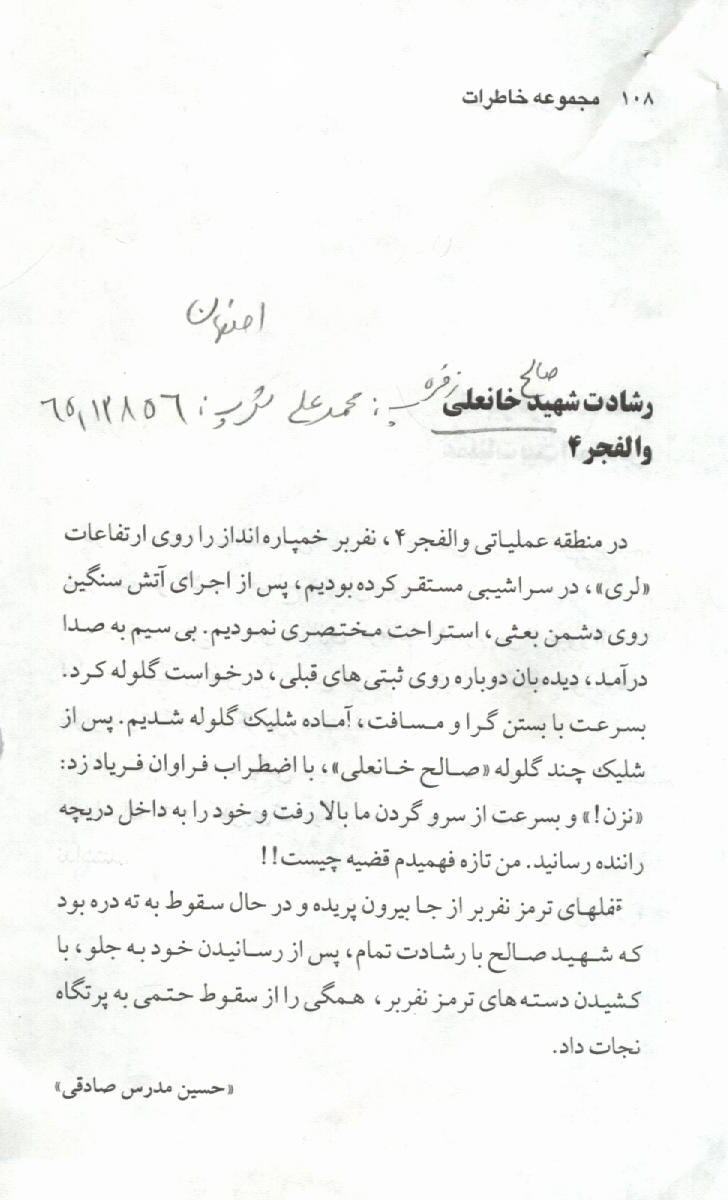 ۱۰۸ مجموعه خاطرات
اصفهان
صالح
رشادت شهید خانعلی زفره پ: محمدعلی
والفجر ۴
در منطقه عملیاتی والفجر ۴، نفربر خمپاره انداز را روی ارتفاعات
«لری»، در سراشیبی مستقر کرده بودیم، پس از اجرای آتش سنگین
روی دشمن بعثی، استراحت مختصری نمودیم. بی سیم به صدا
درآمد، دیده بان دوباره روی ثبتی های قبلی، درخواست گلوله کرد.
بسرعت با بستن گرا و مسافت، آماده شلیک گلوله شدیم. پس از
شلیک چند گلوله «صالح خانعلی»، با اضطراب فراوان فریاد زد:
«نزن!» و بسرعت از سرو گردن ما بالا رفت و خود را به داخل دریچه
راننده رسانید. من تازه فهمیدم قضیه چیست!!
قفلهای ترمز نفربر از جا بیرون پریده و در حال سقوط به ته دره بود
که شهید صالح با رشادت تمام، پس از رسانیدن خود به جلو، با
کشیدن دسته های ترمز نفربر، همگی را از سقوط حتمی به پرتگاه
نجات داد.
«حسین مدرس صادقی»